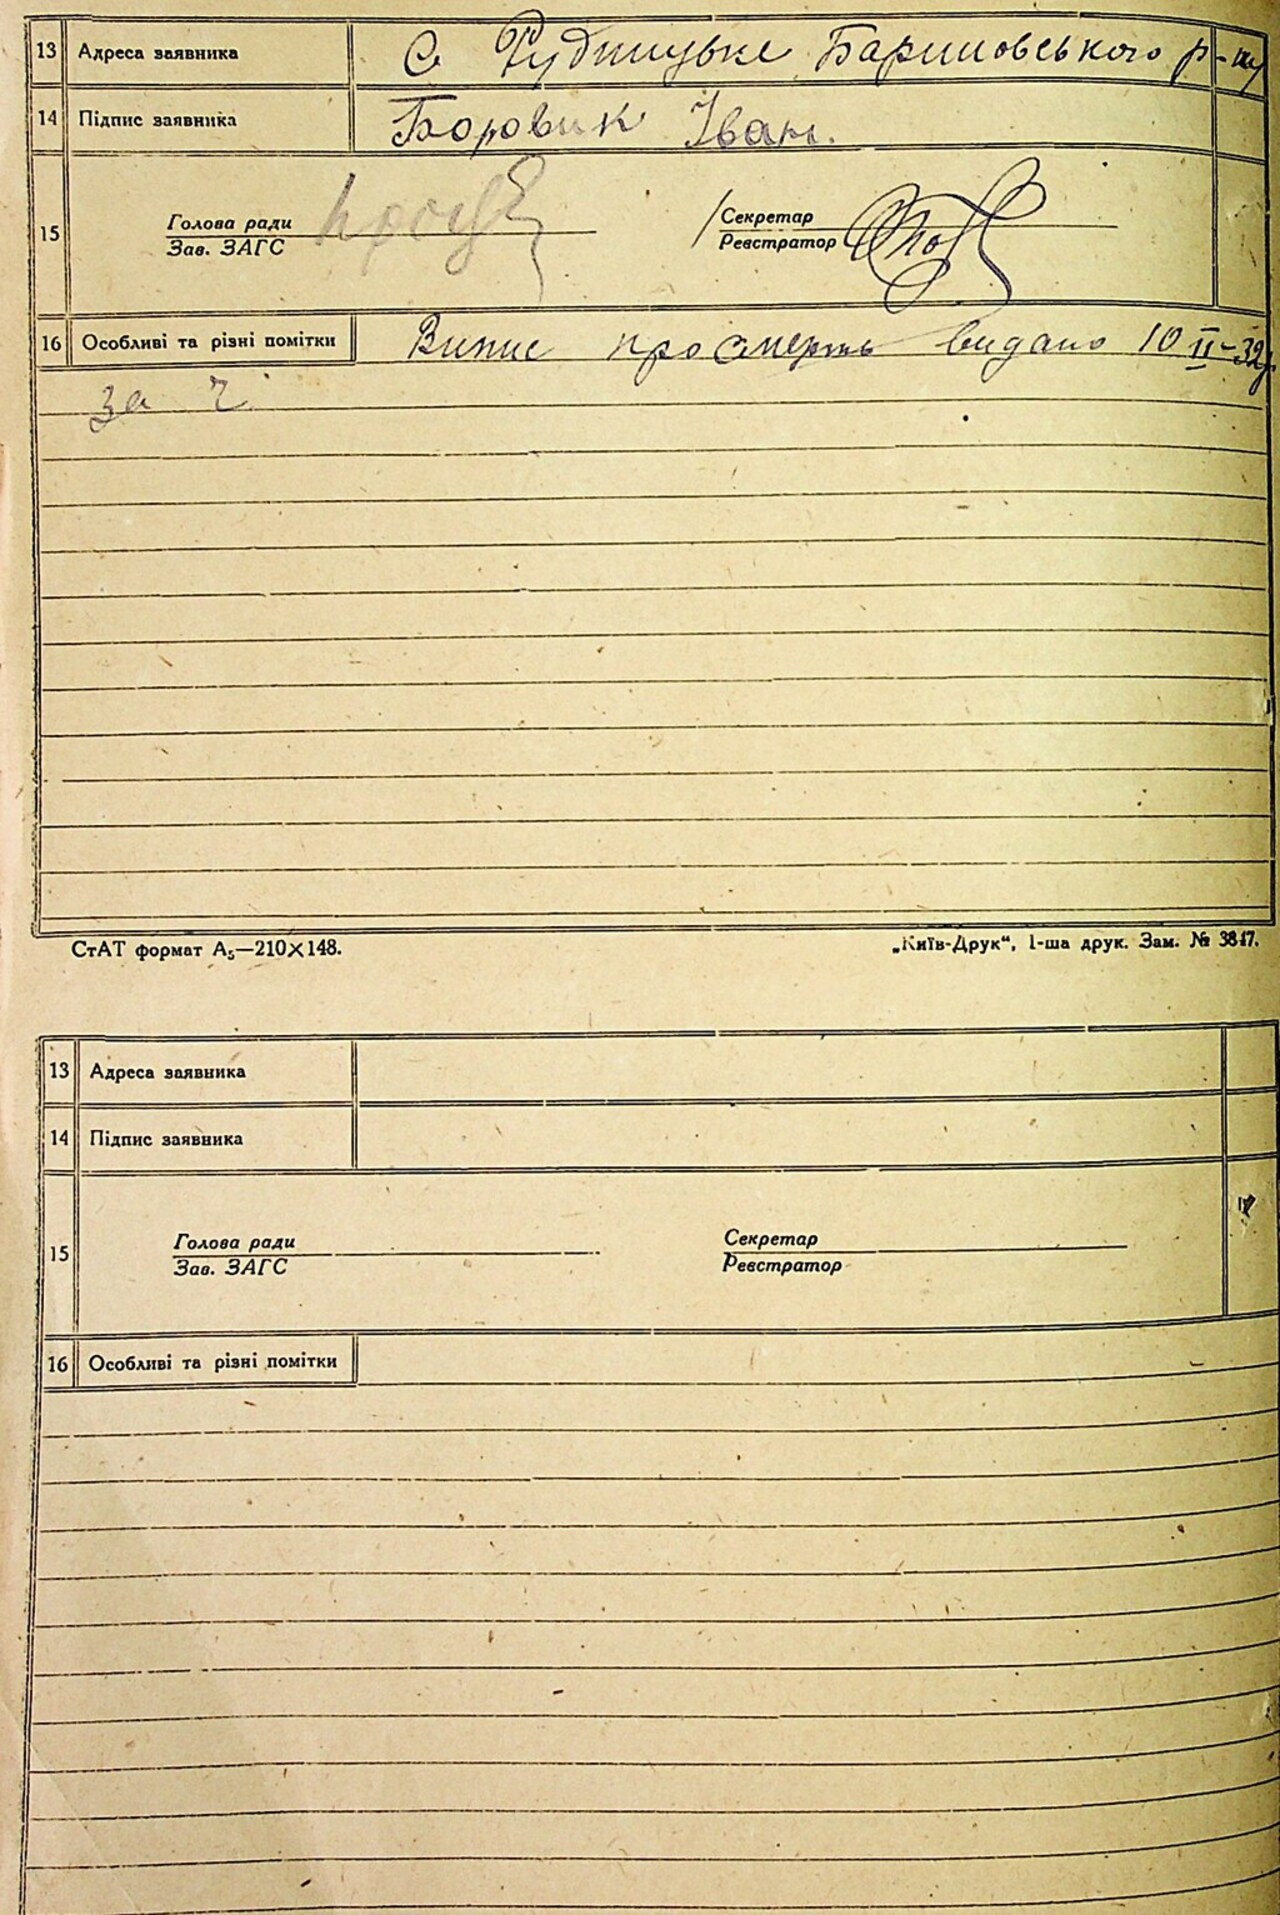 13 Адреса заявника С Рудницьке Баришовського р-ну
14 Підпис заявника Боровик Іван.
15 Голова ради Секретар
Зав. ЗАГС Реєстратор
16 Особливі та різні помітки Випис про смерть видано 10 II-32р.
за ч
СтАТ формат А₅—210×148. „Київ-Друк“, 1-ша друк. Зам. № 3847.
13 Адреса заявника
14 Підпис заявника
15 Голова ради Секретар
Зав. ЗАГС Реєстратор
16 Особливі та різні помітки